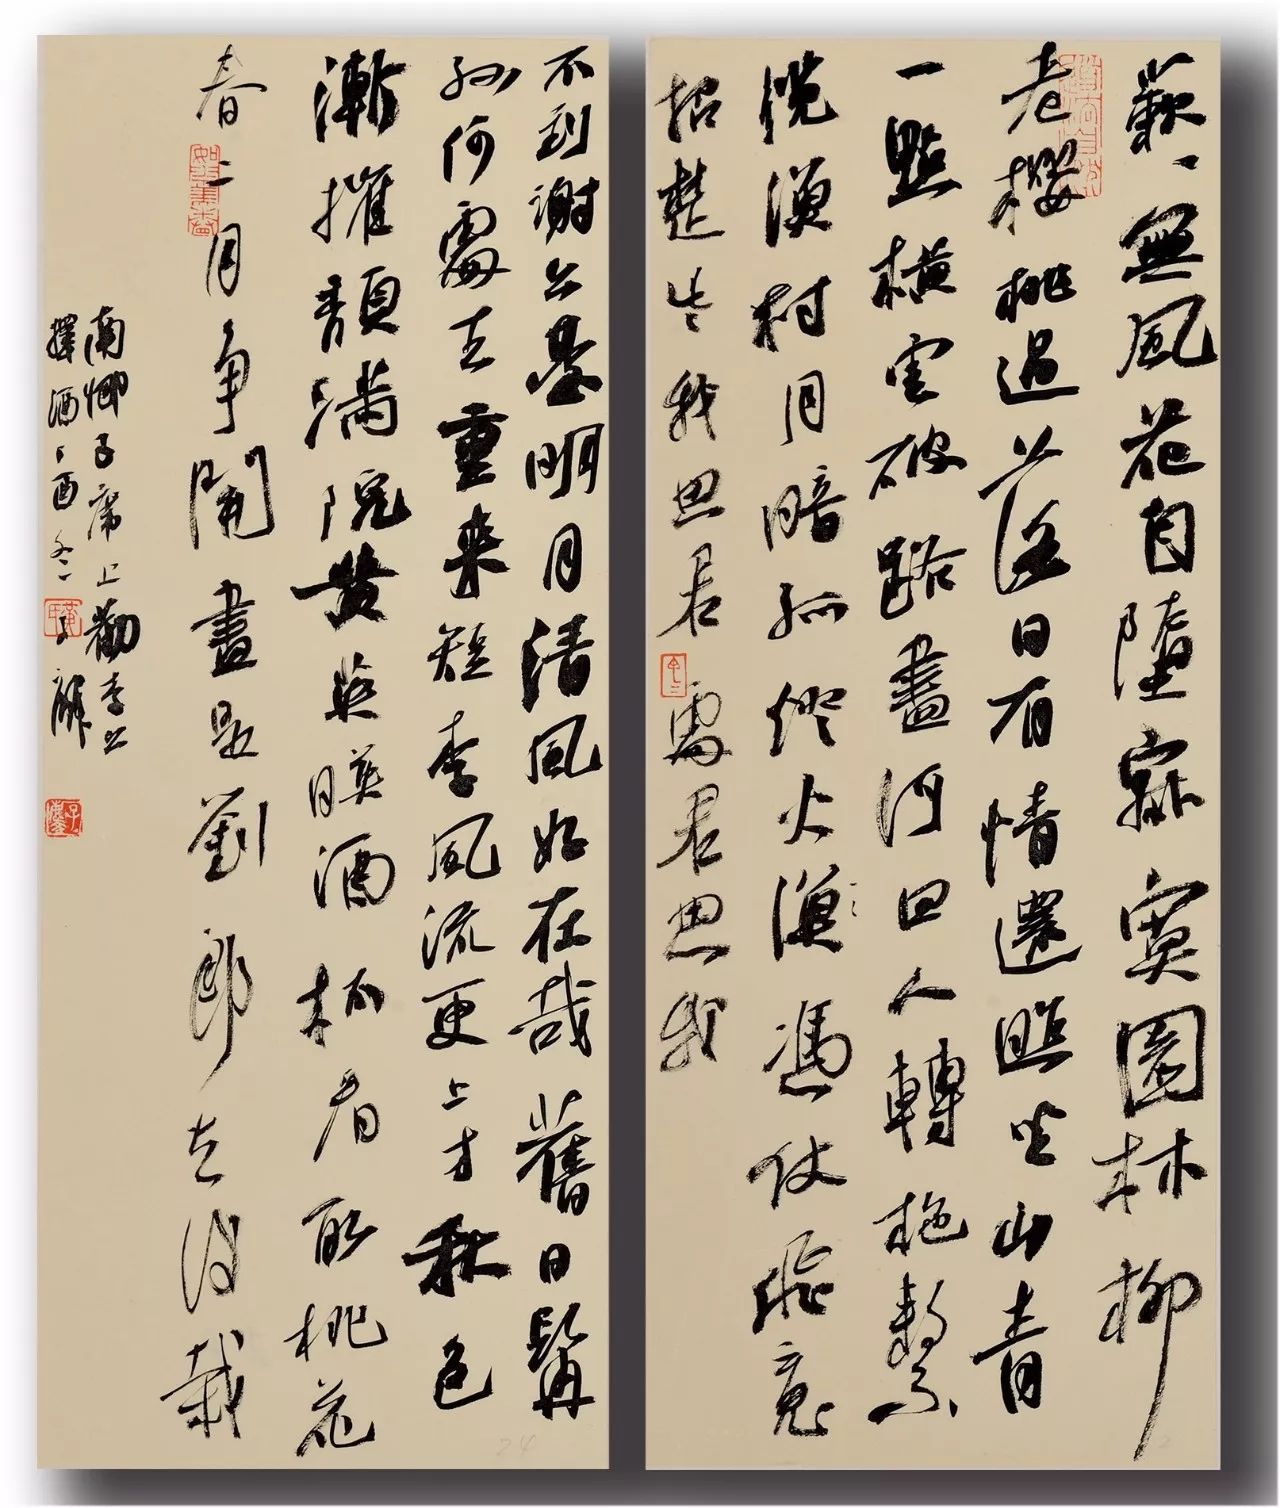 蔌蔌無風花自墮寂寞園林柳
老櫻桃過落日有情還照坐山青
一點橫雲破路盡河回人轉柂繫
纜漁村月暗孤燈火漁憑仗飛魂
招楚些我思君處君思我
不到謝公臺明月清風好在哉舊日髯
孫何處去重來短李風流更上才秋色
漸摧頹滿院黃英映酒杯看取桃花
春二月爭開盡是劉郎去後栽
南鄉子席上勸李公
擇酒丁酉冬